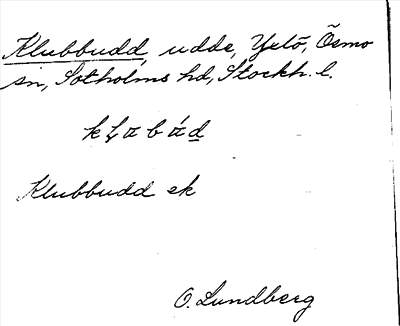 Klubbudd, udde, Yxlö, Ösmo
sn, Sotholms hd, Stockh. l.
Klubbudd ek
O. Lundberg